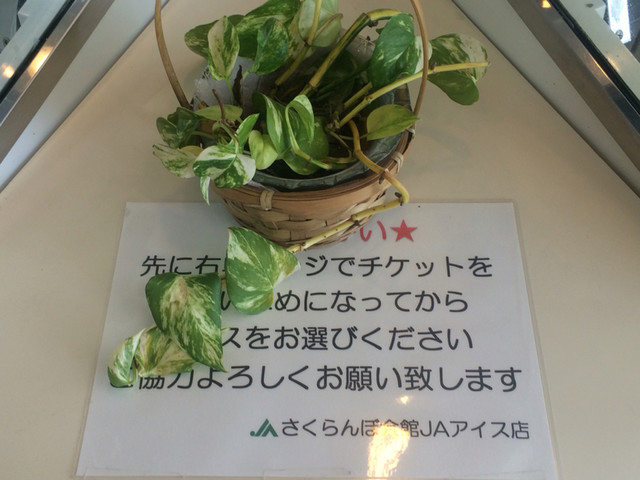 い★
先に右 ジでチケットを
い めになってから
スをお選びください
協力よろしくお願い致します
JAさくらんぼ会館JAアイス店